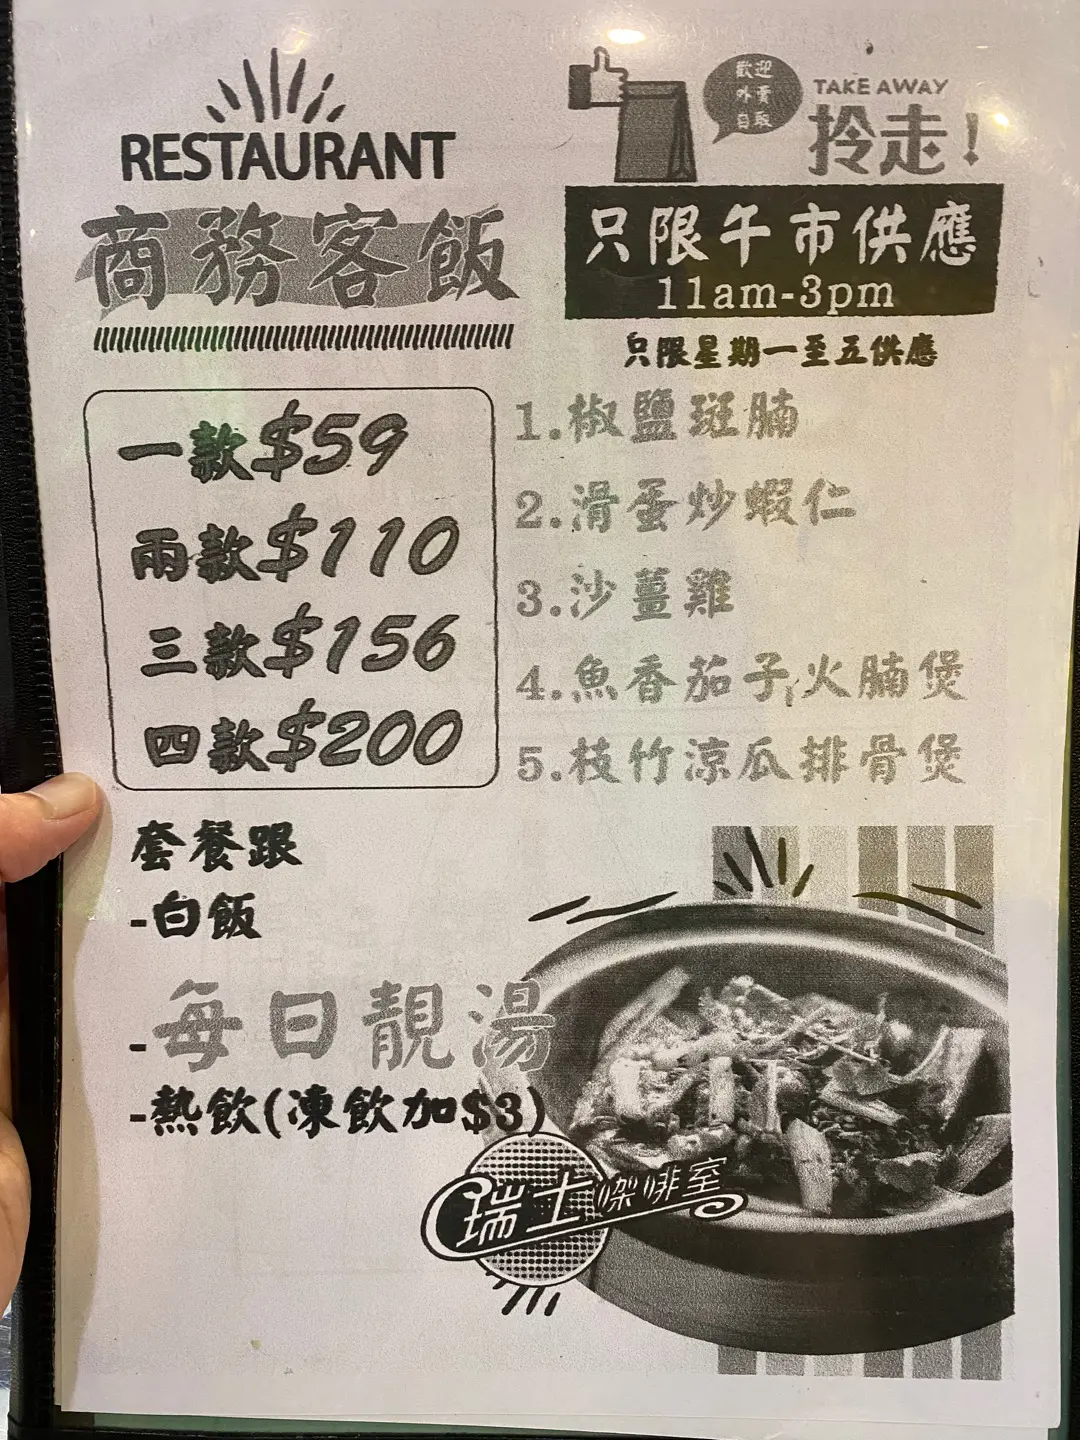 RESTAURANT
商務客飯
歡迎
外賣
自取
TAKE AWAY
拎走!
只限午市供應
11am-3pm
只限星期一至五供應
一款$59
兩款$110
三款$156
四款$200
1.椒鹽斑腩
2.滑蛋炒蝦仁
3.沙薑雞
4.魚香茄子火腩煲
5.枝竹涼瓜排骨煲
套餐跟
-白飯
-每日靚湯
-熱飲(凍飲加$3)
瑞士㗎啡室